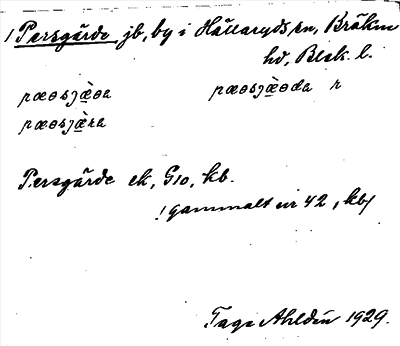 1 Persgärde jb, by i Hällaryds sn, Bräkne
hd, Blek. l.
pæɵsjæ̀ɵa pæɵsjæ̀ɵda r
pæɵsjæ̀ra
Persgärde ek, G10, kb.
! gammalt nr 42, kb/
Tage Ahldén 1929.